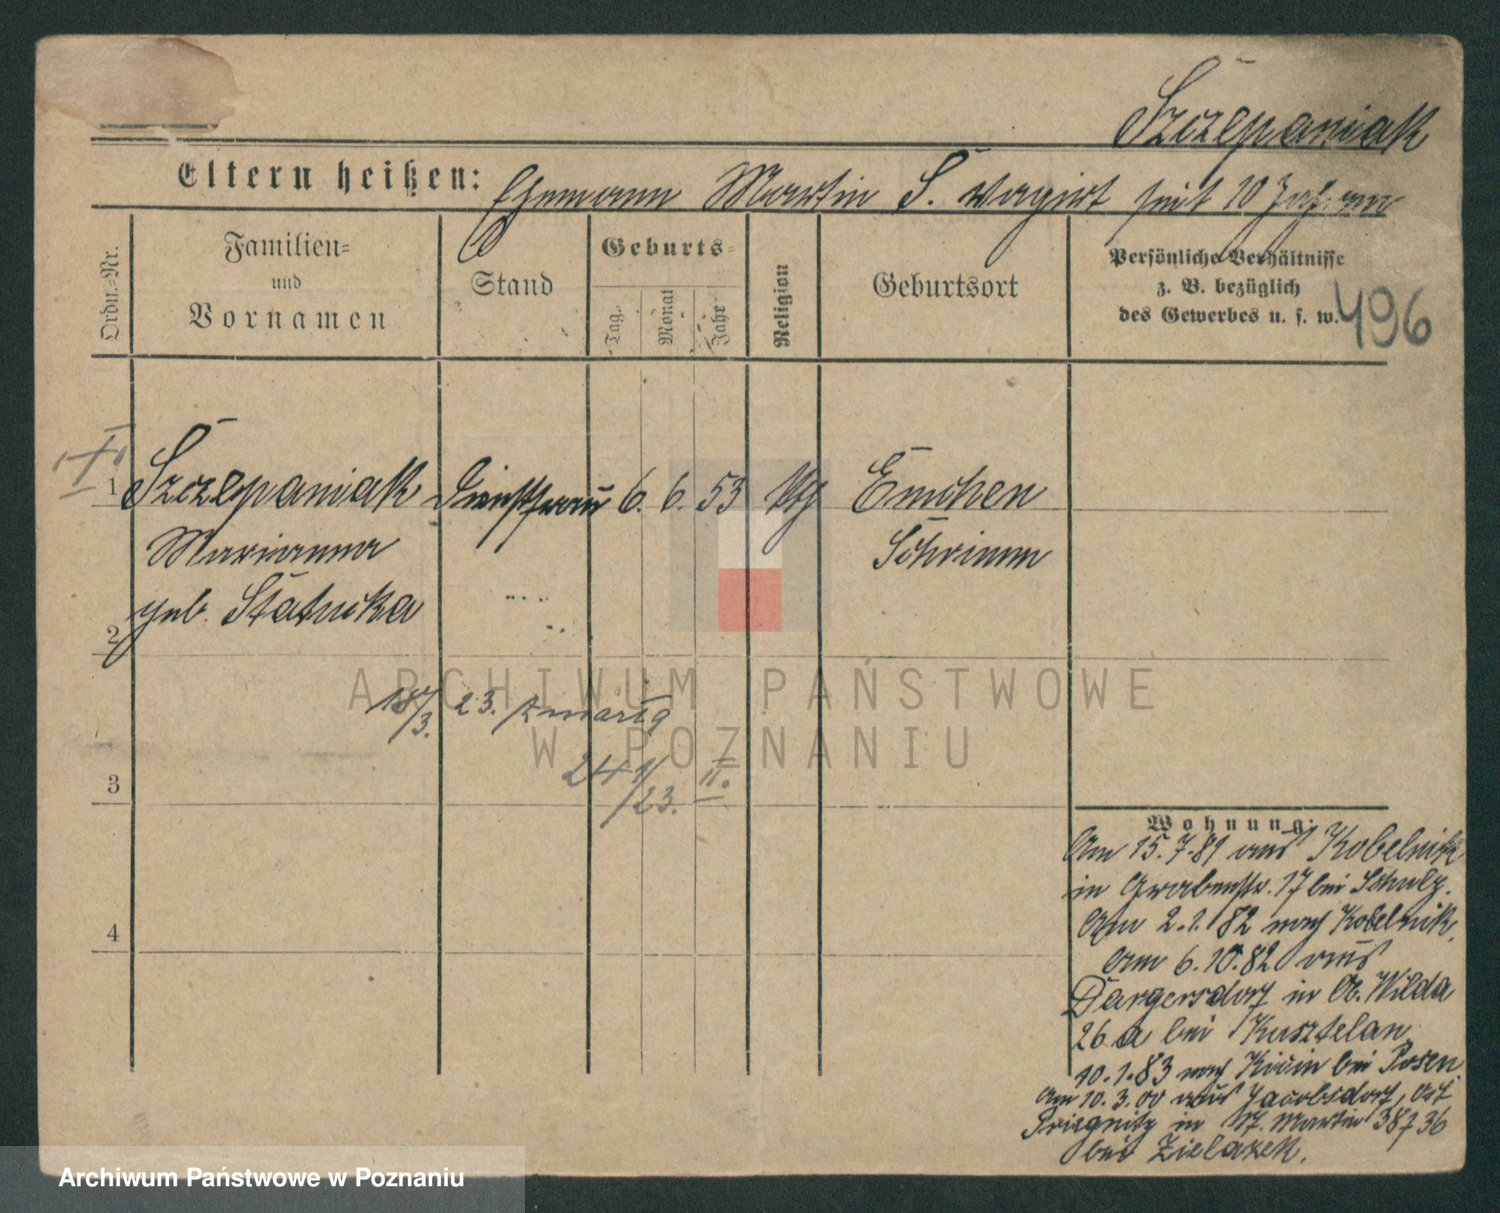 Szczepaniak
Eltern heißen: Ehemann Martin S. vagirt seit 10 Jahren
Ordn.=Nr.
Familien=
und
Vornamen
Stand
Geburts=
Tag.
Monat
Jahr
Religion
Geburtsort
Persönliche Verhältnisse
z. B. bezüglich
des Gewerbes u. s. w.
496
1 Szczepaniak Dienstfrau 6. 6. 53 Emchen
Marianna Schrimm
geb. Statucka
2
18/3. 23. zmarła
3
24 1/23. II.
4
Wohnung:
Am 15.7.81 aus Kobelnik
in Grabenstr. 17 bei Schulz.
Am 2.1.82 nach Kobelnik.
Am 6.10.82 aus
Dargersdorf in O. Wilda
26 a bei Kusztelan
10.1.83 nach Kicin bei Posen
Am 10.3.00 aus Jacobsdorf, Ost
Priegnitz in St. Martin 38736
bei Zielazek.
ARCHIWUM PAŃSTWOWE
W POZNANIU
Archiwum Państwowe w Poznaniu